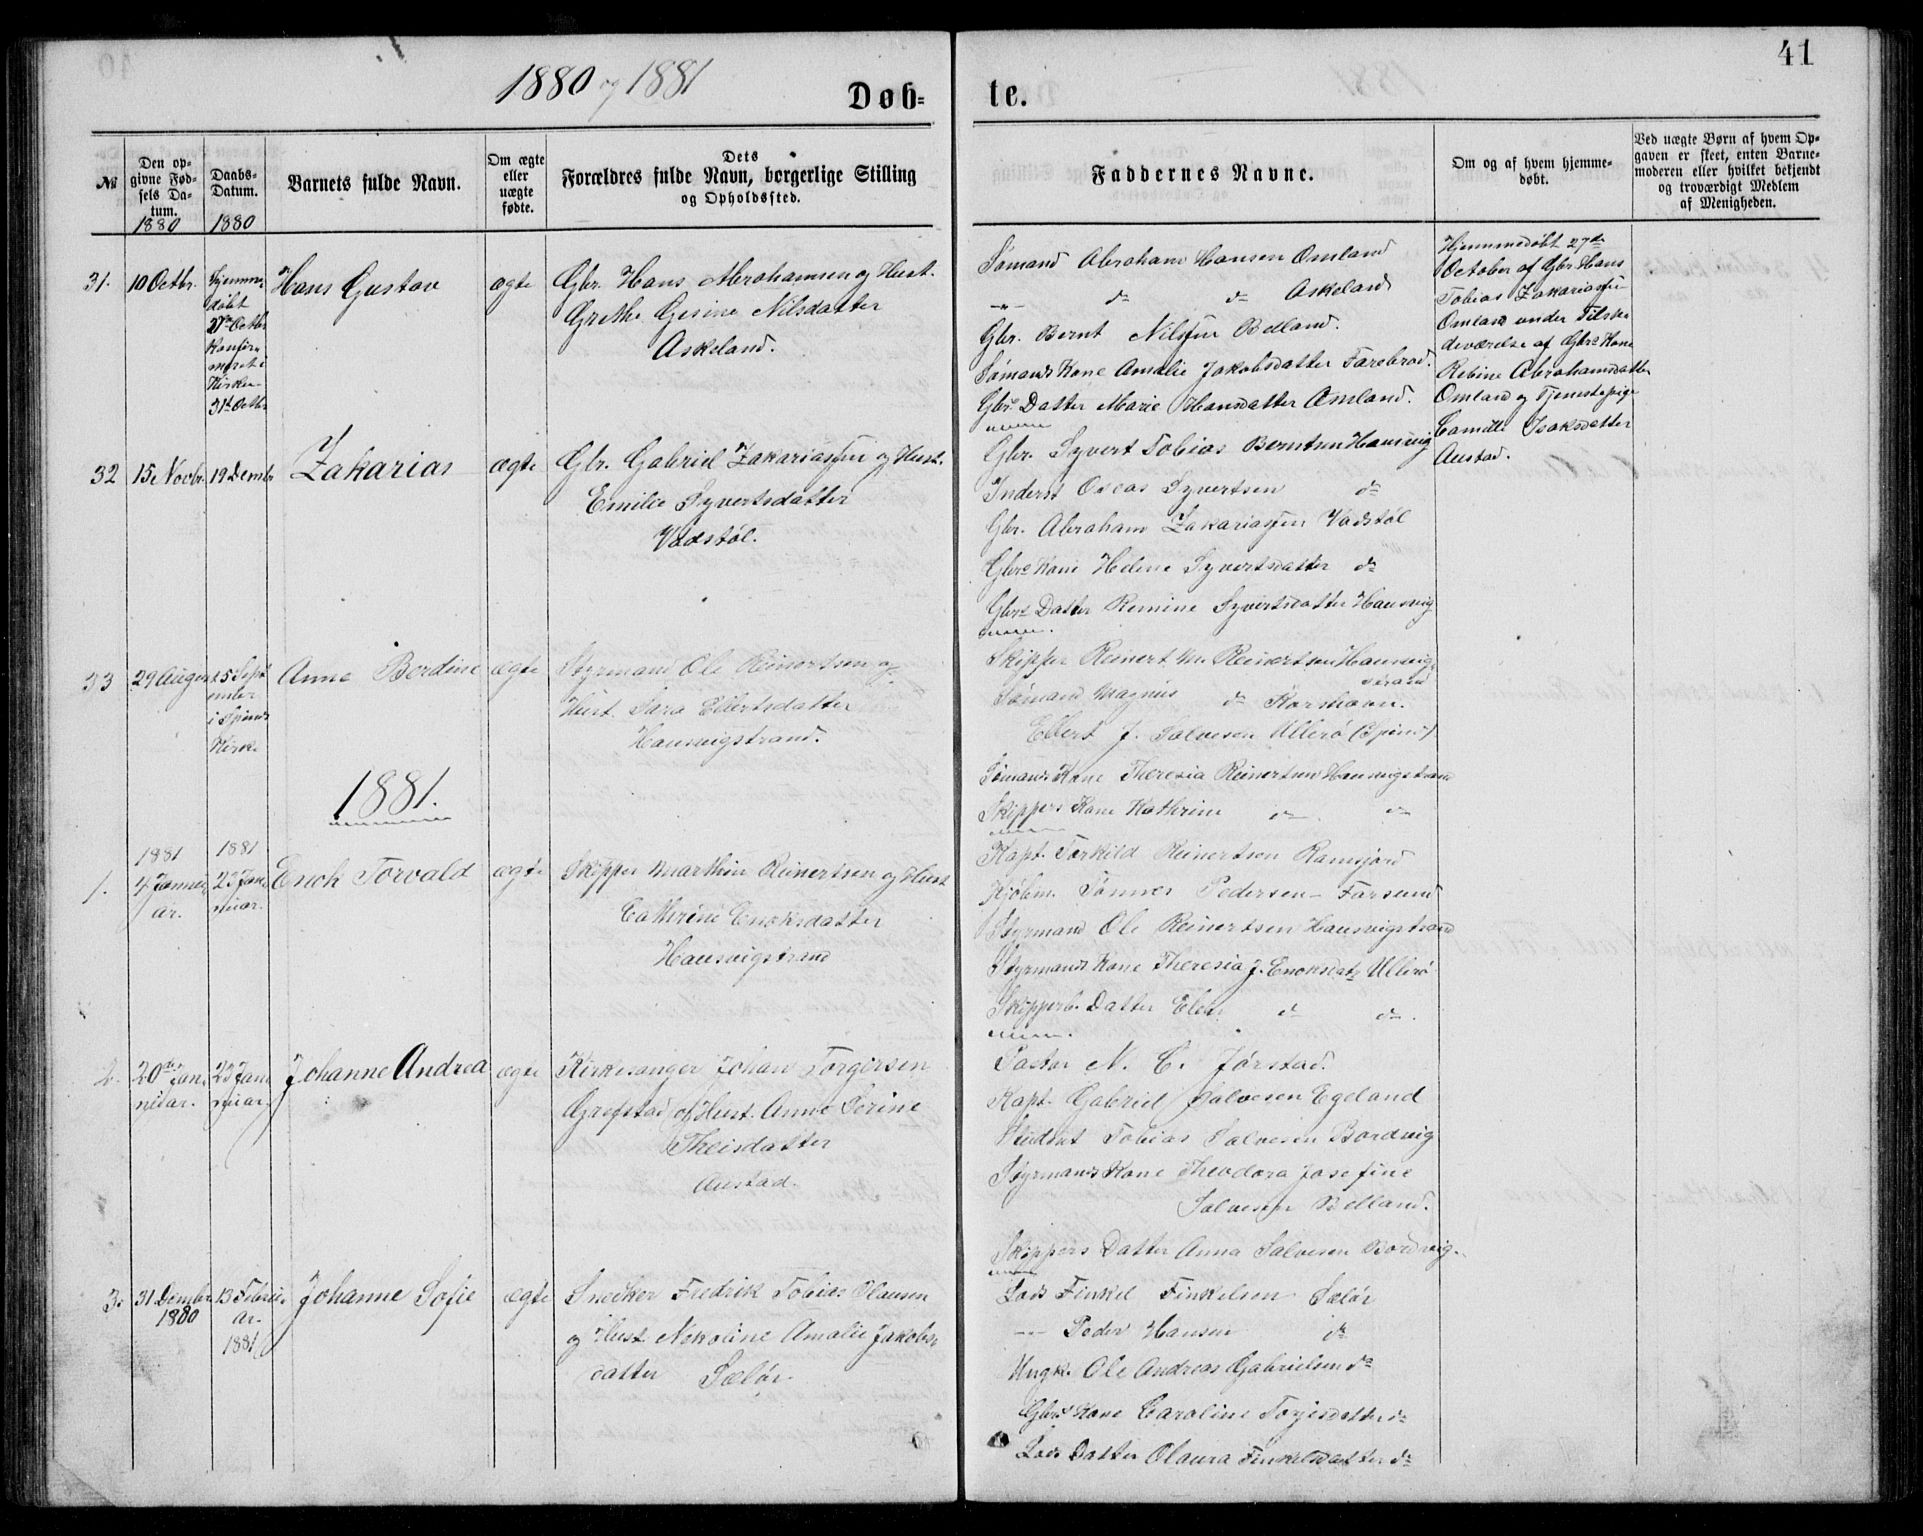 41
1880 og 1881
Døb-
te.
№
Den op-
givne Fød-
sels Da-
tum.
1880
Daabs-
Datum.
1880
Barnets fulde Navn.
Om ægte
eller
uægte
fødte.
Dets
Forældres fulde Navn, borgerlige Stilling
og Opholdssted.
Faddernes Navne.
Om og af hvem hjemme-
døbt.
Ved uægte Børn af hvem Op-
gaven er skeet, enten Barne-
moderen eller hvilket bekjendt
og troværdigt Medlem
af Menigheden.
31.
10 Octbr.
Hjemme-
døbt
27de Octbr
Konfir-
meret i
Kirken
31te Octbr
Hans Gustav
ægte
Gbr. Hans Abrahamsen og Hust.
Grethe Gesine Nilsdatter
Askeland.
Sømand Abraham Hansen Omland
-"- do do Askeland
Gbr. Bernt Nilssen Belland.
Sømands Kone Amalie Jakobsdatter Farebrod.
Gbrs Datter Marie Hansdatter Omland.
Hjemmedøbt 27de
October af Gbr. Hans
Tobias Zakariassen
Omland under Tilste-
deværelse af Gbrs Kone
Rebine Abrahamsdatter
Omland og Tjenestepige
Camilli Isaksdatter
Austad.
32
15 Novbr.
19 Dembr
Zakarias
ægte
Gbr. Gabriel Zakariassen og Hust.
Emilie Syvertsdatter
Vadstøl.
Gbr. Syvert Tobias Berntsen Hausvig
Inderst Oscar Syvertsen do
Gbr. Abraham Zakariassen Vadstøl
Gbrs Kone Helene Syvertsdatter do
Gbrs Datter Remine Syvertsdatter Hausvig
33
29 August
25 Sept
ember
i Spinds
Kirke
Anne Berdine
ægte
Styrmand Ole Reinertsen og
Hust. Sara Ellertsdatter
Hausvigstrand.
Skipper Reinert M. Reinertsen Hausvig-
strand
Sømand Magnus do Korshavn.
Ellert J. Salvesen Ullerø (Spind)
Sømands Kone Theresia Reinertsen Hausvigstrand
Skippers Kone Kathrine do do
1881.
1.
1881
4 Janu-
ar.
1881
23 Jan-
uar.
Enok Torvald
ægte
Skipper Marthin Reinertsen og Hust
Cathrine Enoksdatter
Hausvigstrand
Kapt. Torkild Reinertsen Ramsjord
Kjøbm. Tønnes Pedersen - Farsund
Styrmand Ole Reinertsen Hausvigstrand
Styrmands Kone Theresia J. Enoksdatr Ullerø
Skippers Datter Elen do do.
2.
20de Jan-
uar.
23 Jan-
uar.
Johanne Andrea
ægte
Kirkesanger Johan Torgersen
Grefstad og Hust. Anne Serine
Theisdatter
Austad.
Pastor N. C. Jørstad.
Kapt. Gabriel Salvesen Egeland
Student Tobias Salvesen Bordvig
Styrmands Kone Theodora Josefine
Salvesen Belland.
Skippers Datter Anna Salvesen Bordvig.
3.
31 Dembr
1880
13 Febru-
ar.
1881
Johanne Sofie
ægte
Snecker Fredrik Tobias Olausen
og Hust. Nikoline Amalie Jakobs-
datter Sælør.
Lods Finkel Finkelsen Sælør
-"- Peder Hansen do
Ungk. Ole Andreas Gabrielsen do
Gbrs Kone Caroline Torjesdatter do
Lods Datter Olaura Finkelsdatter do